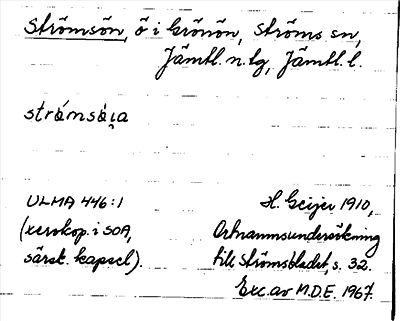 Strömsön, ö i Grönön, Ströms sn,
Jämtl. n. tg, Jämtl. l.
strömsö̀ɳa
ULMA 446:1
(xerokop. i SOA,
särsk. kapsel).
H. Geijer 1910,
Ortnamnsundersökning
till Strömsbladet, s. 32.
Exc. av M.D.E. 1967.